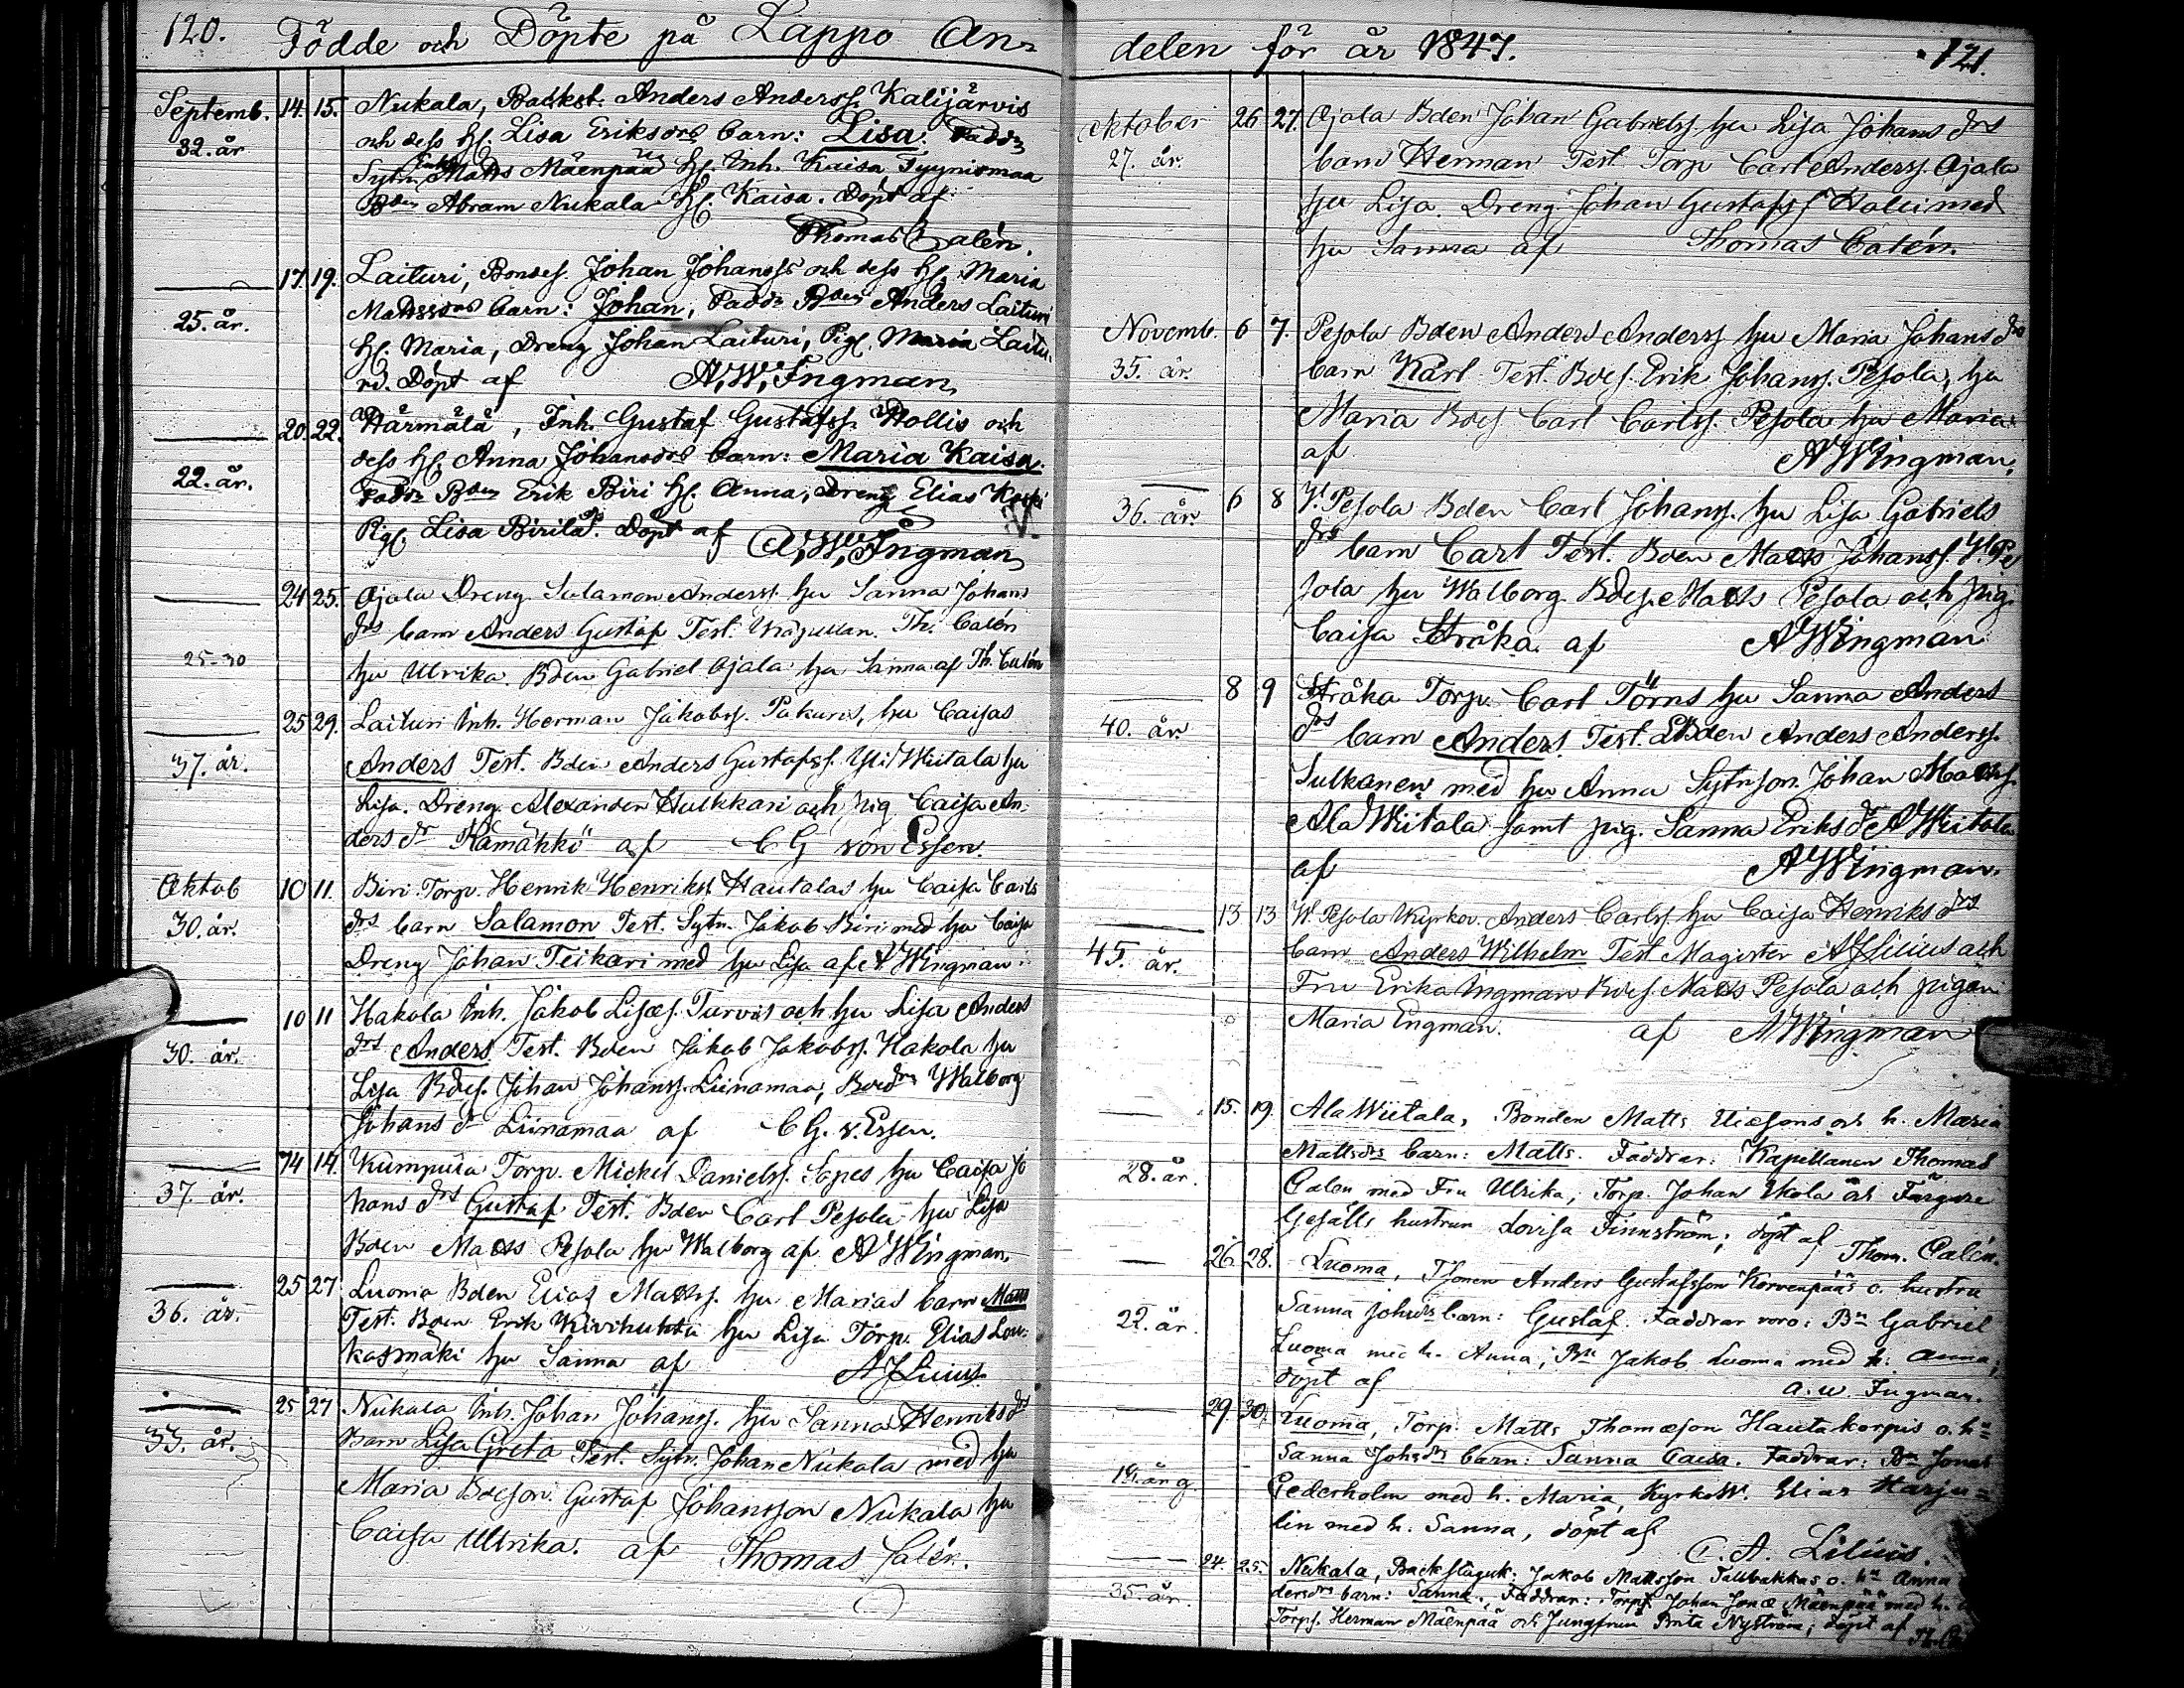 120.
Födde och Döpte på Lappo An-
Septemb. 14. 15. Nukala, Backst. Anders Anderss. Kalijärvis
32. år och dess H. Lisa Eriksdrs barn: Lisa. Faddr
Sytn. Matts Mäenpää H. Inh. Kaisa Tyynismaa
Bden Abram Nukala H. Kaisa. Döpt af
Thomas Calén.
17. 19. Laituri, Bondes. Johan Johanss och dess H. Maria
25. år. Mattsdrs barn: Johan, Faddr Bden Anders Laituri
H. Maria, Dreng Johan Laituri, Pig. Maria Laitu-
ri. Döpt af A. W. Ingman
20. 22. Härmälä, Inh. Gustaf Gustafss. Hollis och
dess H. Anna Johansdrs barn: Maria Kaisa.
22. år. Faddr Bden Erik Biri H. Anna, Dreng Elias Koski
Pig. Lisa Birilä. Döpt af A. W. Ingman
24 25. Ajala Dreng Salamon Anderss. hu Sanna Johans
drs barn Anders Gustaf Test. Th. Calén
25-30 hu Ulrika. Bden Gabriel Ajala hu Sanna af Th. Calén
25 29. Laituri Inh. Herman Jakobss. Pukuris, hu Caisas
37. år. Anders Test. Bden Anders Gustafss. Yli Wiitala hu
Lisa. Dreng Alexander Hulkkari och pig Caisa An-
ders dr Hämähkö af C G von Essen.
Oktob 10 11. Biri Torp. Henrik Henrikss. Hautalas hu Caisa Carls
30. år. drs barn Salamon Test. Sytn. Jakob Biri med hu Caisa
Dreng Johan Teikari med hu Lisa af A W Ingman
10 11 Hakola Inh. Jakob Lisas. Turvis och hu Lisa Anders
30. år. drs Anders Test. Bden Jakob Jakobss. Hakola hu
Lisa Bdes. Johan Johanss. Liinamaa, Bdedrn Walborg
Johans dr Liinamaa af C G. v. Essen.
14 14. Kumpula Torp. Mickel Danielss. Sopes hu Caisa Jo
37. år. hans drs Gustaf Test. Bden Carl Pesola hu Lisa
Bden Matts Pesola hu Walborg af A W Ingman.
25 27 Luoma Bden Elias Mattss. hu Marias barn Matts
36. år. Test. Bden Erik Kivihuhta hu Lisa Torp. Elias Lou-
kasmäki hu Sanna af A J Lilius
25 27 Nukala Inh. Johan Johanss. hu Sanna Henriks drs
33. år. Barn Lisa Greta Test. Sytn. Johan Nukala med hu
Maria Bdeson. Gustaf Johansson Nukala hu
Caisa Ulrika. af Thomas Calén.
delen för år 1847. 121.
Oktober 26 27. Ajala Bden Johan Gabrielss. hu Lisa Johans drs
27. år. barn Herman Test Torp Carl Anderss. Ajala
hu Lisa. Dreng Johan Gustafss Halli med
hu Sanna af Thomas Calén.
Novemb. 6 7. Pesola Bden Anders Anderss hu Maria Johans drs
35. år. barn Karl Test. Bdes. Erik Johanss. Pesola, hu
Maria Bdes Carl Carlss. Pesola hu Maria
af A W Ingman.
36. år. 6 8 Y. Pesola Bden Carl Johanss. hu Lisa Gabriels
drs barn Carl Test. Bden Matts Johanss. Y. Pe
sola hu Walborg Bdes. Matts Pesola och pig.
Caisa Stråka af A W Ingman
8 9 Stråka Torp. Carl Törns hu Sanna Anders
40. år drs barn Anders Test. LBden Anders Anderss.
Sulkanen med hu Anna Sytnson. Johan Mattss.
Ala Wiitala samt pig. Sanna Eriks dr A Wiitola
af A W Ingman.
13 13 Y. Pesola Kyrkov. Anders Carlss. hu Caisa Henriks drs
45. år. barn Anders Wilhelm Test Magister A J Lilius och
Fru Erika Ingman Bdes. Matts Pesola och pigan
Maria Engman. af A W Ingman
15. 19. Ala Wiitala, Bonden Matts Eliæsons och h. Maria
28. år. Mattsdrs barn: Matts. Faddrar: Kapellanen Thomas
Calen med Fru Ulrika, Torp. Johan Ikola och Färgare
Gesälls hustrun Lovisa Finnström; döpt af Thom. Calén.
26. 28. Luoma, Anders Gustafsson Korvenpääs o. hustru
22. år. Sanna Johnsdrs barn: Gustaf. Faddrar voro: Bn Gabriel
Luoma med h. Anna; Bn Jakob Luoma med h: Anna,
döpt af A. W. Ingman.
29 30. Luoma, Torp. Matts Thomæson Hautakorpis o. hu
Sanna Johsdrs barn: Sanna Caisa. Faddrar: Bn Jonas
19. år g Cederholm med h. Maria, Kyrkow. Elias Harju-
lin med h. Sanna, döpt af C. A. Lilius.
24. 25. Nukala, Backstuguk: Jakob Mattsson Tallbakkas o. hu Anna
35. år. dersdrs barn: Sanna. Faddrar: Torps. Johan Jonæ Mäenpää med h.
Torps. Herman Mäenpää och Jungfrun Brita Nyström; döpt af